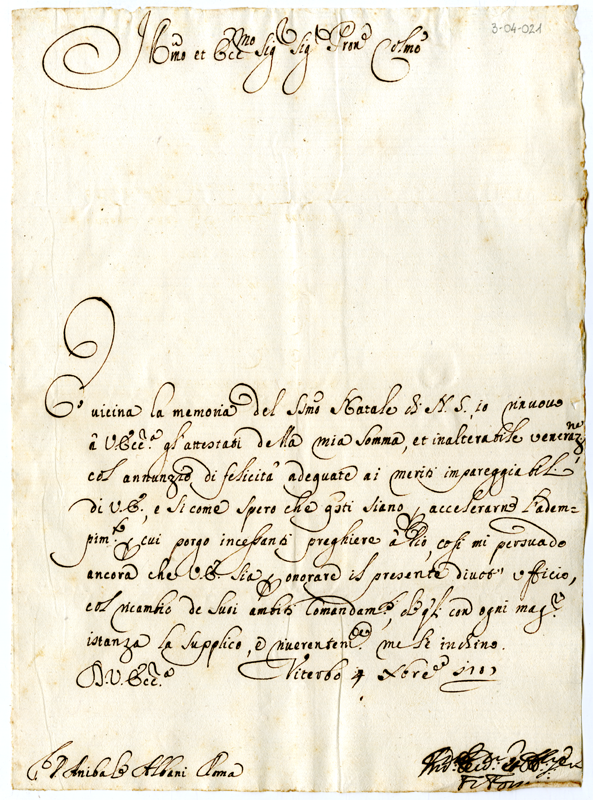 3-04-021
Ill.mo et Ecc.mo Sig.r Sig.r Pron.e Colmo
E' vicina la memoria del S.mo Natale di N. S., io rinuovo
à V. Ecc.a gl'attestati della mia somma, et inalterabile veneraz.ne
col annunzio di felicità adeguate ai meriti impareggiabili
di V. E., e si come spero che q.sti siano, accelerarne l'adem=
pim.to, cui porgo incessanti preghiere à Dio, così mi persuado
ancora che V. E. sia onorare il presente divot.o ufficio,
col ricambio de suoi ambiti Comandam.ti, de q.li con ogni mag.re
istanza la supplico, e riverentem.te me le inchino.
D. V. Ecc.a
Viterbo 4 Xbre
Anibale Albani Roma